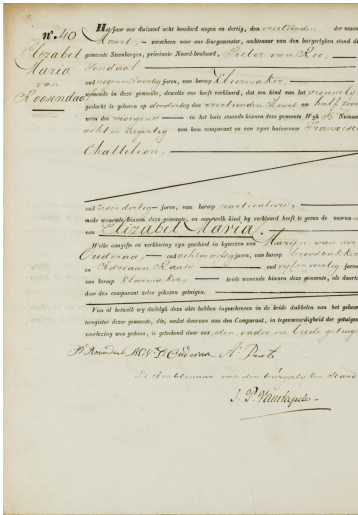 N°. 40
Elizabet
Maria
van
Roosendaal
Het jaar een duizend acht honderd negen en dertig, den veertienden der maand
Maart, verscheen voor ons Burgemeester, ambtenaar van den burgerlyken stand der
gemeente Steenbergen, provincie Noord-brabant, Pieter van Roo-
sendaal
oud negenentwintig jaren, van beroep Kleermaker,
wonende in deze gemeente, dewelke ons heeft verklaard, dat een kind van het vrouwelyk
geslacht is geboren op donderdag den veertienden Maart om half
uren des morgens in het huis staande binnen deze gemeente Wyk B Nummer
achtenzestig van hem comparant en van zyne huisvrouw Francisca
Chattelion,
oud jaren, van beroep particuliere,
mede wonende binnen deze gemeente, en aan welk kind hy verklaard heeft te geven de voornamen
van Elizabet Maria.
Welke aangifte en verklaring zyn geschied in bywezen van Maryn van den
Ouderaa, oud jaren, van beroep broodbakker
en Adriaan Raats oud vyfenveertig jaren
van beroep kleermaker, beide wonende binnen deze gemeente, als daartoe
door den comparant zelve gekozen getuigen.
Van al hetwelk wy dadelyk deze akte hebben ingeschreven in de beide dubbelen van het geboorte
register dezer gemeente, die, nadat dezelve aan den Comparant, in tegenwoordigheid der getuigen
voorlezing was gedaan, is geteekend door ons, den vader en beide getuigen
De Ambtenaar van den burgerlyken Stand